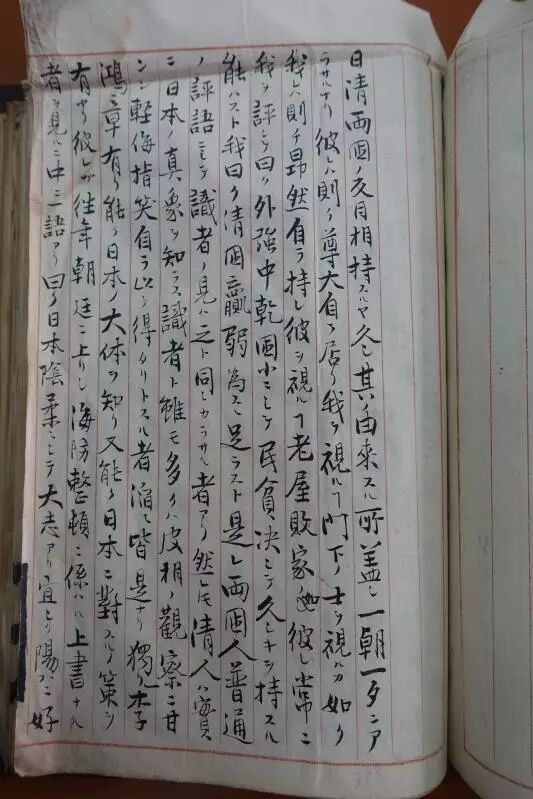 日清両国ノ反目相持スルヤ久シ其ノ由来スル所蓋シ一朝一タニア
ラサルナリ彼レハ則チ尊大自ラ居リ我ヲ視ルコ門下ノ士ヲ視ルカ如ク
我レハ則チ昂然自ラ持シ彼ヲ視ルコ老屋敗家 彼レ常ニ
我ヲ評シテ曰ク外強中乾国小ニシテ民貧シ決シテ久シキヲ持スル
能ハスト我曰ク清国羸弱為スニ足ラスト是レ両国人普通
ノ評語ニシテ識者ノ見ハ之ト同シカラサル者アリ然レモ清人ハ實
ニ日本ノ真象ヲ知ラス識者ト雖モ多クハ皮相ノ観察ニ甘
ンシ軽侮指笑自ラ以テ得タリトスル者滔々皆是ナリ獨リ李
鴻章有リ能ク日本ノ大体ヲ知リ又能ク日本ニ對スルノ策ヲ
有セリ彼レカ往年朝廷ニ上リシ海防整頓ニ係ハル上書ナル
者ヲ見ルニ中ニ語アリ曰ク日本陰柔ニシテ大志アリ宜シク陽ハニ好